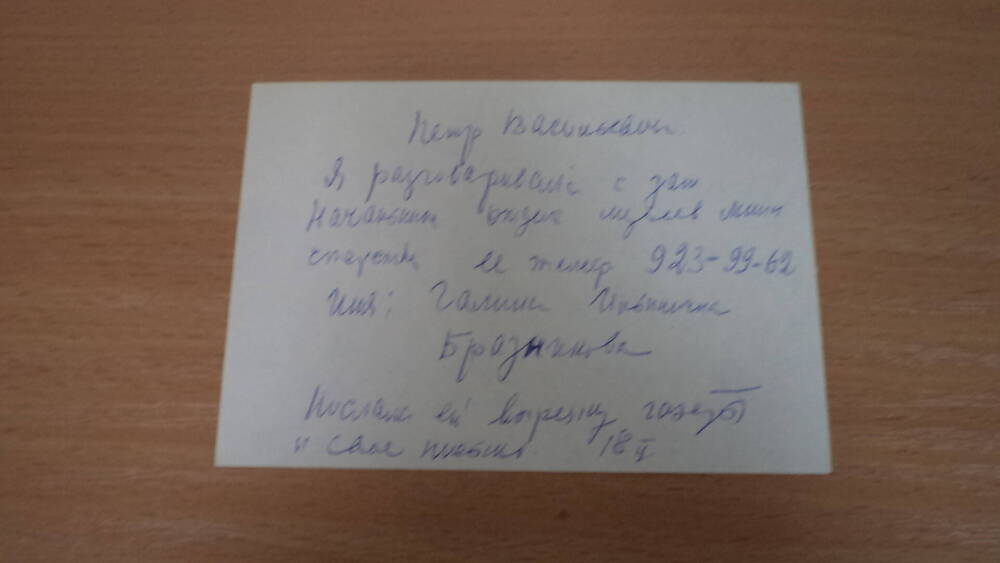 Петр Васильевич
Я разговаривала с зам
Начальник отдела музеев Мин
её телеф 923-99-62
Имя: Галина Ивановна
Бразникова
Послала ей вырезку газеты
и свое письмо 18 II